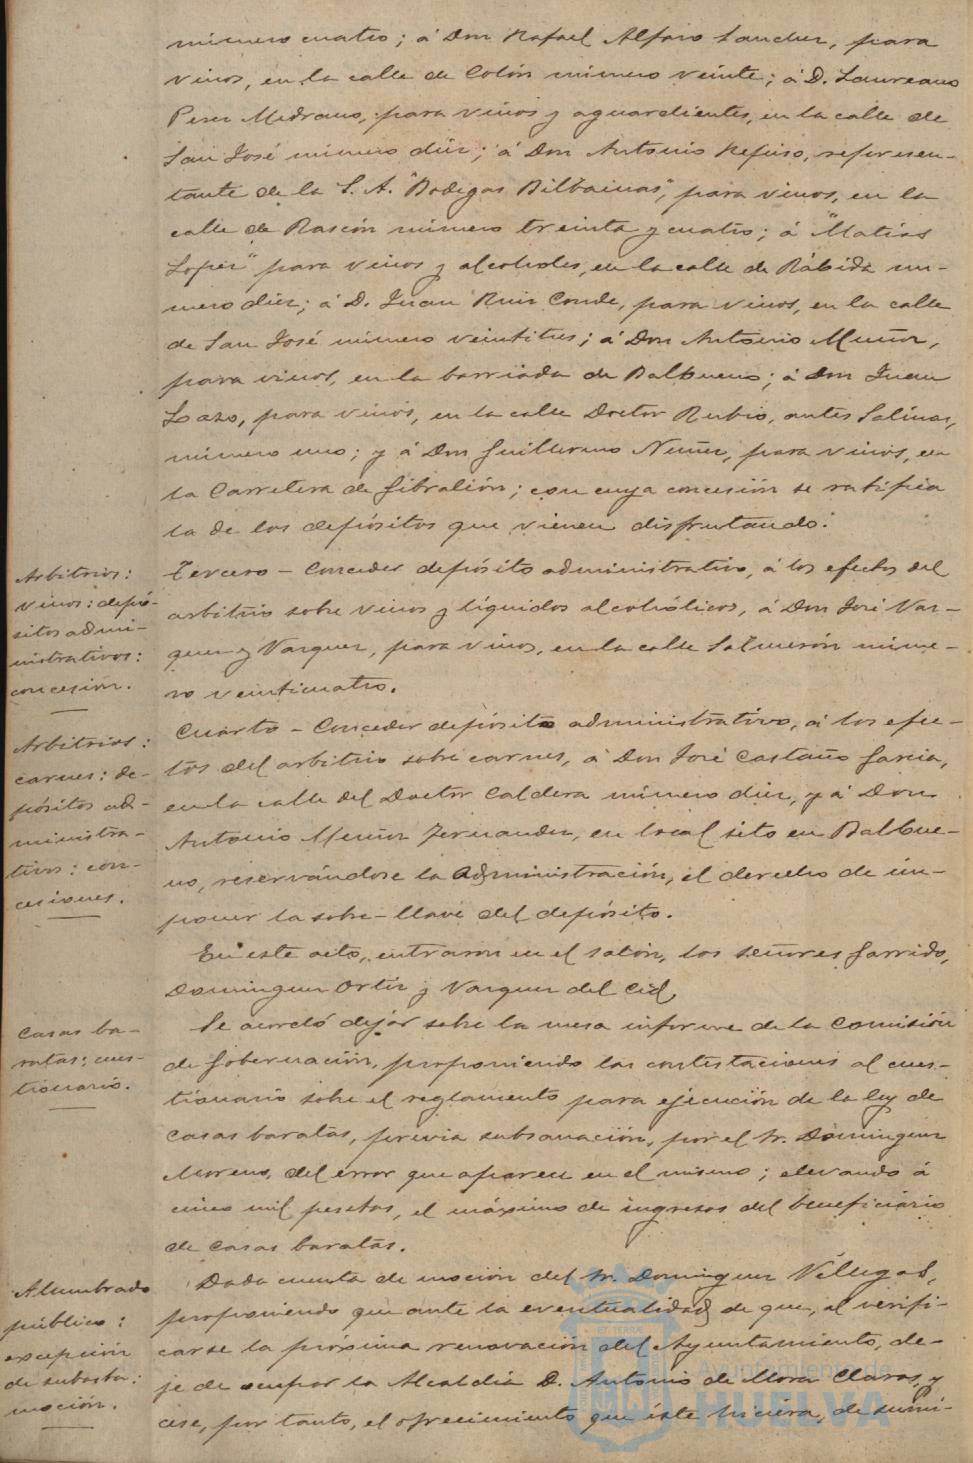 número cuatro; á Don Rafael Alfaro Sanchez, para
vinos, en la calle de Colón número veinte; á D. Laureano
Perez Medrano, para vinos y aguardientes, en la calle de
San José número diez; á Don Antonio Refino, represen-
tante de la S. A. "Bodegas Bilbainas", para vinos, en la
calle de Rascón número treinta y cuatro; á "Matías
Lopez" para vinos y alcoholes, en la calle de Rábida nú-
mero diez; á D. Juan Ruiz Conde, para vinos, en la calle
de San José número veintitres; á Don Antonio Muñoz,
para vinos, en la barriada de Balbueno; á Don Juan
Lazo, para vinos, en la calle Doctor Rubio, antes Salinas,
número uno; y á Don Guillermo Nuñez, para vinos, en
la Carretera de Gibraleón; con cuya concesión se ratifica
la de los depósitos que vienen disfrutando.
Arbitrios:
vinos: depó-
sitos admi-
nistrativos:
concesión.
Tercero - Conceder depósito administrativo, á los efectos del
arbitrio sobre vinos y líquidos alcohólicos, á Don José Vaz-
quez y Vazquez, para vinos, en la calle Salmerón núme-
ro veinticuatro.
Arbitrios:
carnes: de-
pósitos ad-
ministra-
tivos: con-
cesiones.
Cuarto - Conceder depósito administrativo, á los efec-
tos del arbitrio sobre carnes, á Don José Castaño Garcia,
en la calle del Doctor Caldera número diez, y á Don
Antonio Muñoz Fernandez, en local sito en Balbue-
no, reservándose la Administración, el derecho de im-
poner la sobre-llave del depósito.
En este acto, entraron en el salón, los señores Garrido,
Dominguez Ortiz y Vazquez del Cid.
Casas ba-
ratas: cues-
tionario.
Se acordó dejar sobre la mesa informe de la Comisión
de Gobernación, proponiendo las contestaciones al cues-
tionario sobre el reglamento para ejecución de la ley de
casas baratas, previa subsanación, por el Sr. Dominguez
Moreno, del error que aparece en el mismo; elevando á
cinco mil pesetas, el máximo de ingresos del beneficiario
de casas baratas.
Alumbrado
público:
excepción
de subasta:
moción.
Dada cuenta de moción del Sr. Dominguez Villegas,
proponiendo que ante la eventualidad de que, al verifi-
carse la próxima renovación del Ayuntamiento, de-
je de ocupar la Alcaldía D. Antonio de Mora Claros, y
cese, por tanto, el ofrecimiento que éste hiciera, de sumi-
Ayuntamiento de
HUELVA